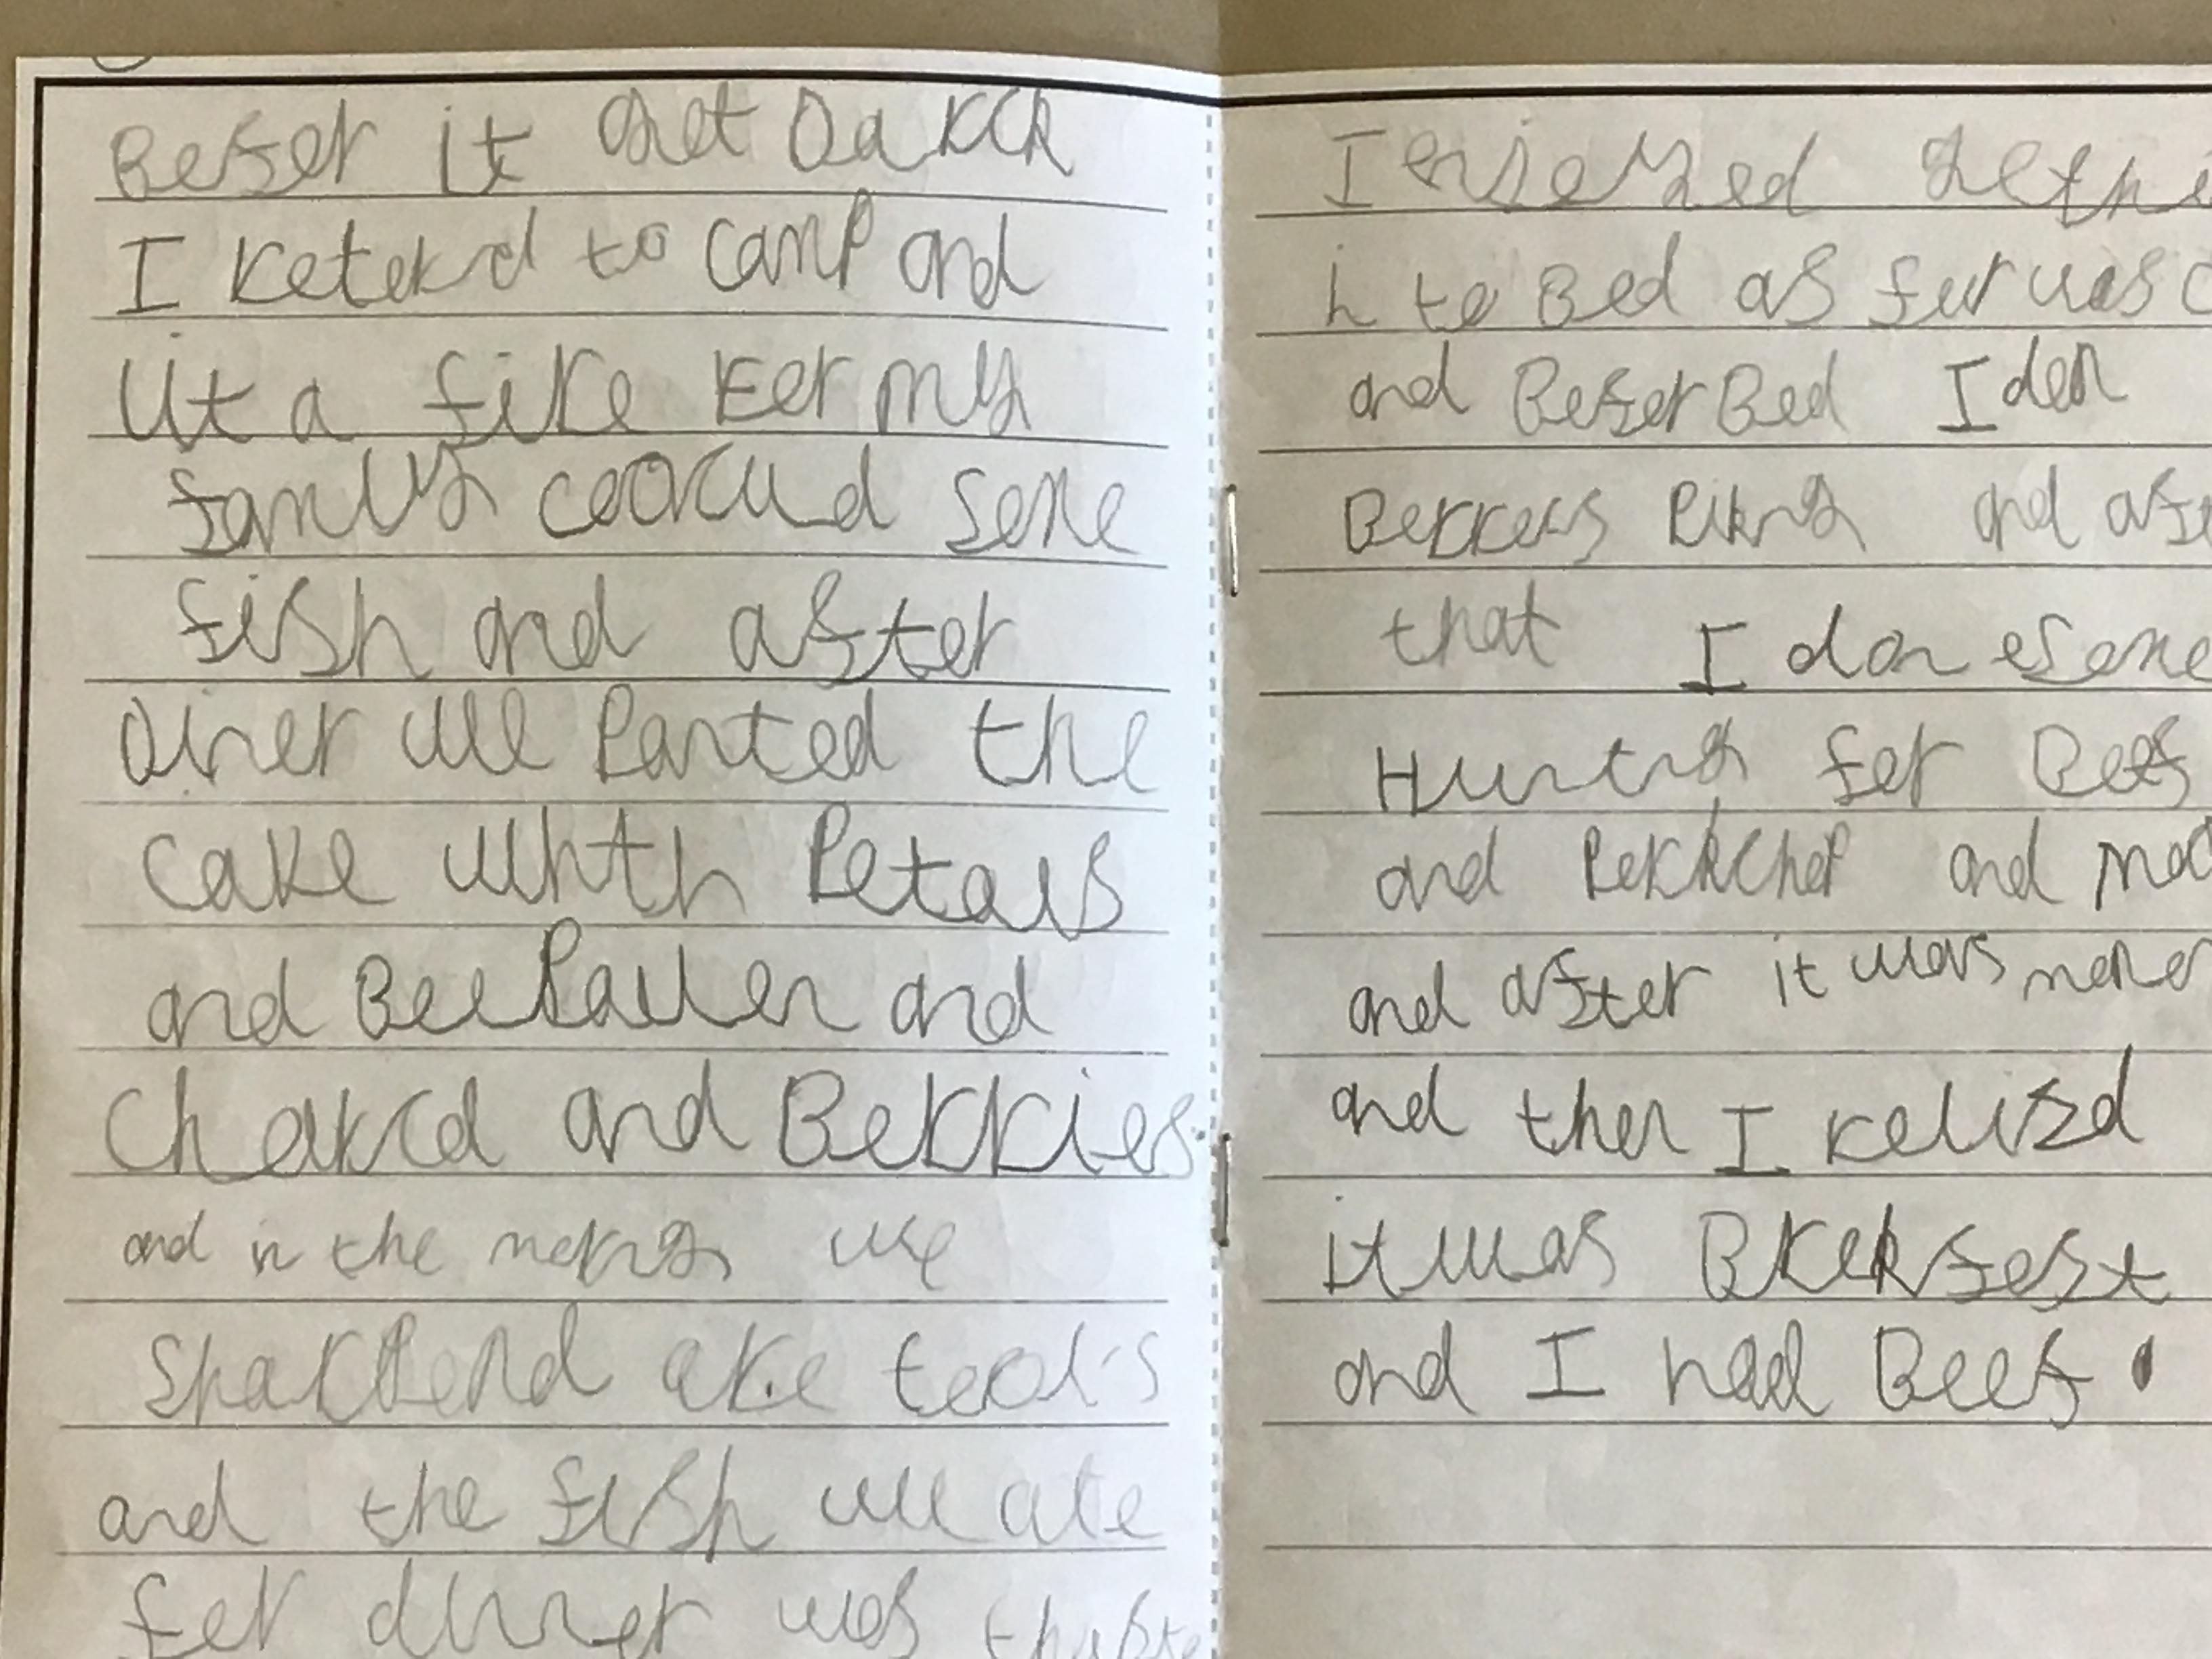 Befor it get Darck
I reterd to camp and
Lit a fire For my
family coocud some
fish and after
Diner we Panted the
cake whith Petals
and Bee Pallen and
charcd and Berries
and in the mornig we
SharPend are tools
and the fish we ate
for dinner was
I enjoed
in to Bed as fur was
and Befor Bed I don
Berrers Piking and
that I don esome
Hunting for Beef
and PorkChoP and
and after it was
and then I relizd
it was Brekfest
and I had Beef.